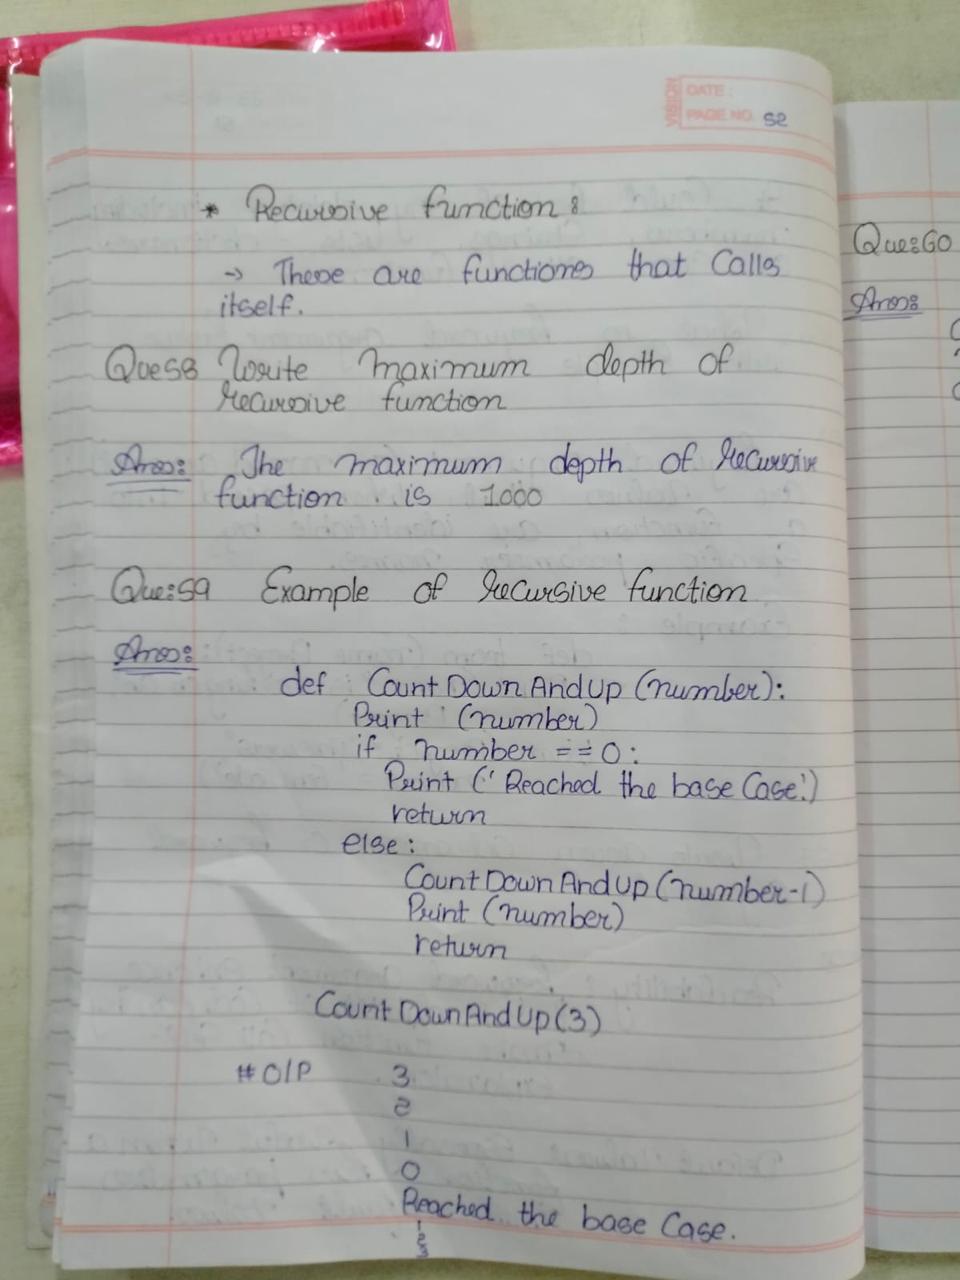 VISION
DATE :
PAGE NO. 52
* Recursive function :
→ These are functions that Calls
itself.
Ques8 Write maximum depth of
recursive function
Ans: The maximum depth of recursive
function is 1000
Que:59 Example of recursive function
Ans:
def CountDownAndUp (number):
Print (number)
if number == 0:
Print (' Reached the base Case.')
return
else :
CountDownAndUp (number-1)
Print (number)
return
CountDownAndUp (3)
# O/P 3
2
1
0
Reached the base Case.
1
2
3
Que:60
Ans: